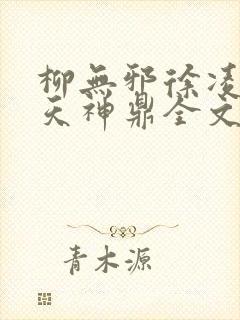 柳無邪徐凌
天神鼎全文
青木源